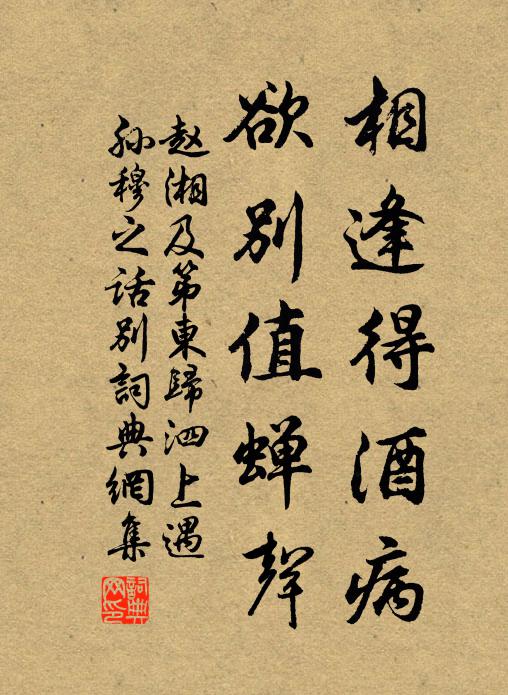 相逢得酒病
欲别值蝉聲
赵湘及第東歸泗上遇
孙穆之话别詞典網集
詞典网印